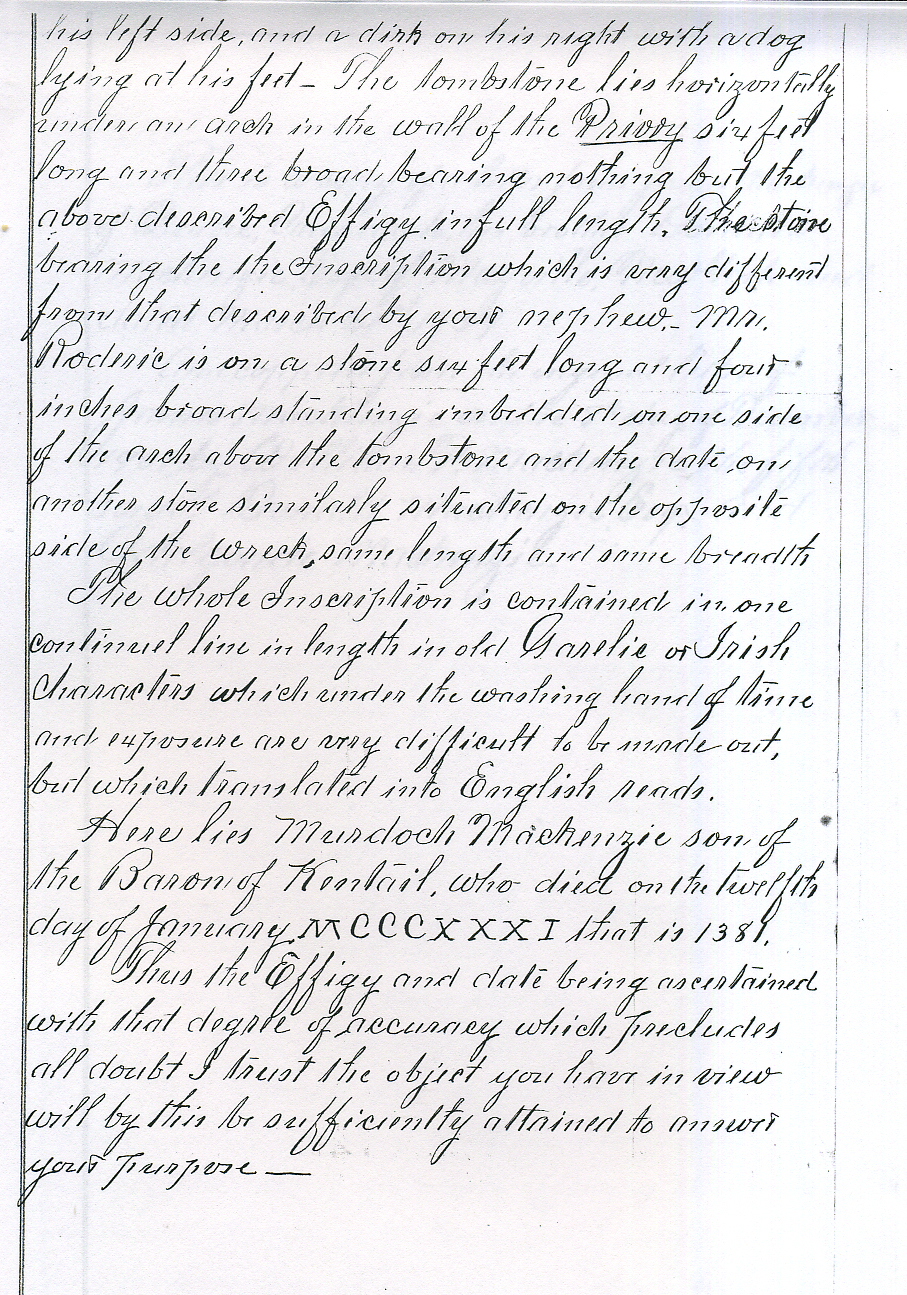 his left side, and a dirk on his right with a dog
lying at his feet - The tombstone lies horizontally
under an arch in the wall of the Privoy six feet
long and three broad bearing nothing but the
above described Effigy in full length. The stone
bearing the the Inscription which is very different
from that described by your nephew. - Mr.
Roderic is on a stone six feet long and four
inches broad standing imbedded on one side
of the arch above the tombstone and the date on
another stone similarly situated on the opposite
side of the wreck, same length and same breadth
The whole Inscription is contained in one
continuel line in length in old Garelic or Irish
Characters which under the washing hand of time
and exposure are very difficult to be made out,
but which translated into English reads.
Here lies Murdoch Mackenzie son of
the Baron of Kentail, who died on the twelfth
day of January MCCCXXXI that is 1381.
Thus the Effigy and date being ascertained
with that degree of accuracy which precludes
all doubt I trust the object you have in view
will by this be sufficiently attained to answer
your purpose —